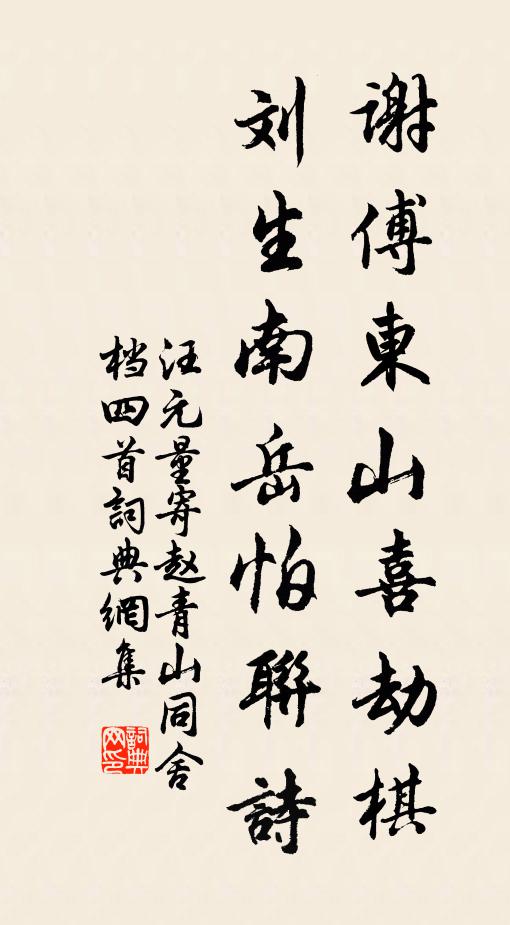 谢傅東山喜劫棋
刘生南岳怕聯詩
汪元量寄赵青山同舍
档四首詞典網集
詞典网印